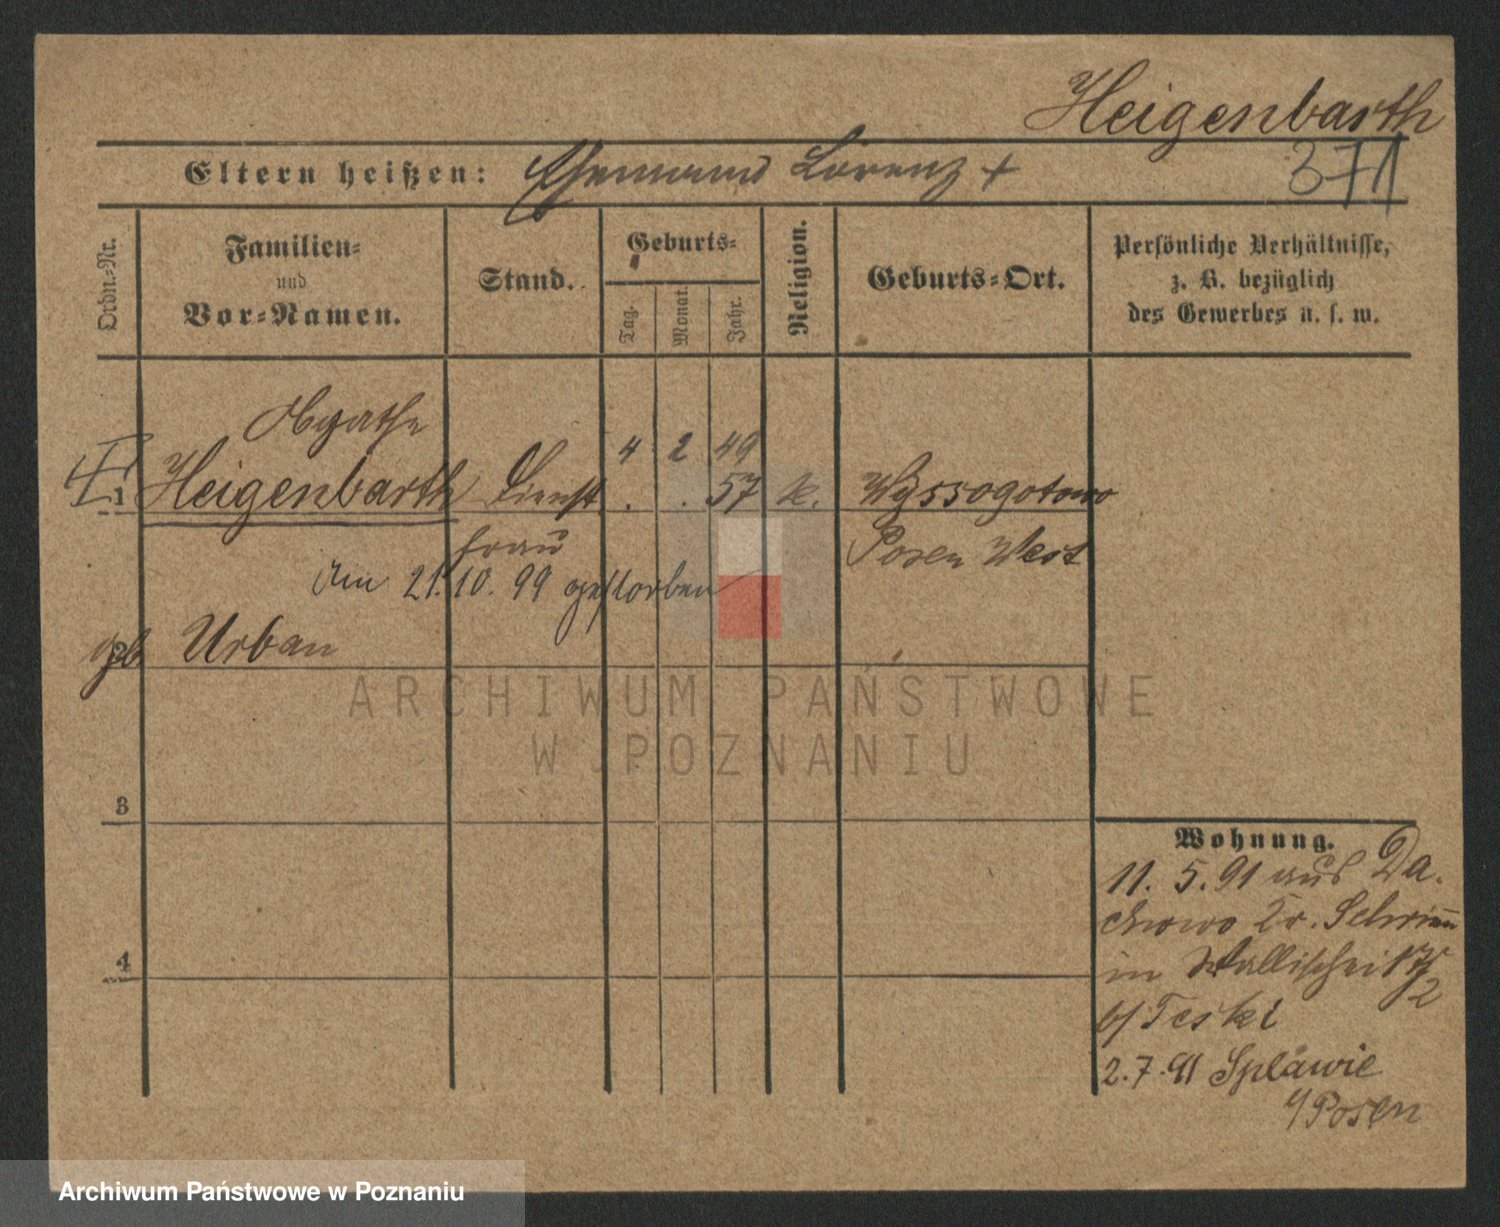 Heigenbarth
371
Eltern heißen: Ehemann Lorenz +
Ordn.-Nr.
Familien-
und
Vor-Namen.
Stand.
Geburts-
Tag.
Monat.
Jahr.
Religion.
Geburts-Ort.
Persönliche Verhältnisse,
z. B. bezüglich
des Gewerbes u. s. w.
Agathe
4 2 49
1 Heigenbarth Dienst . . 57 k. Wyssogotowo
frau Posen West
Am 21.10.99 gestorben
2 geb. Urban
ARCHIWUM PAŃSTWOWE
W POZNANIU
3
4
Wohnung.
11. 5. 91 aus Da-
chowo Kr. Schrimm
in Wallischei
b/ Teski
2.7.91 Splawie
b/ Posen
Archiwum Państwowe w Poznaniu